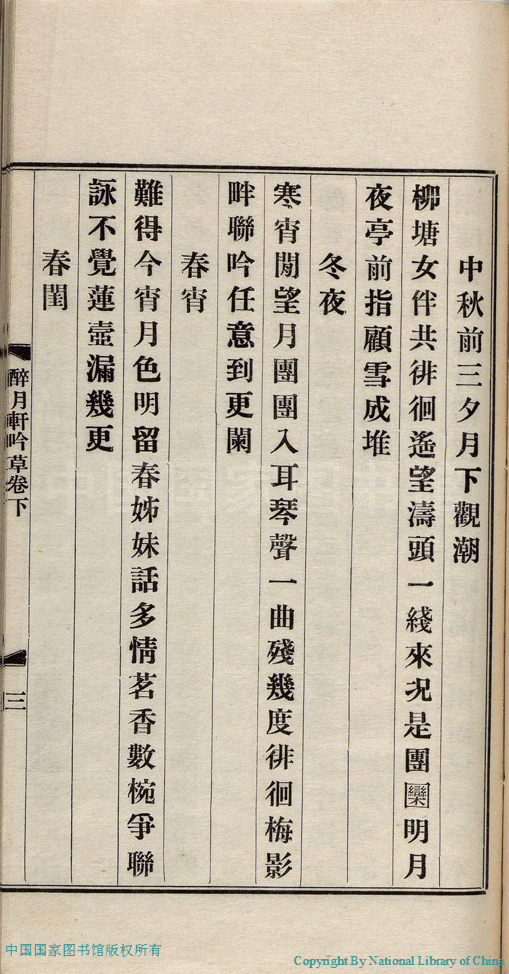 中秋前三夕月下觀潮
柳塘女伴共徘徊遙望濤頭一綫來况是團圞明月
夜亭前指顧雪成堆
冬夜
寒宵閒望月團團入耳琴聲一曲殘幾度徘徊梅影
畔聯吟任意到更闌
春宵
難得今宵月色明留春姊妹話多情茗香數椀爭聯
詠不覺蓮壺漏幾更
春閨
醉月軒吟草卷下
三
中国国家图书馆版权所有
Copyright By National Library of China